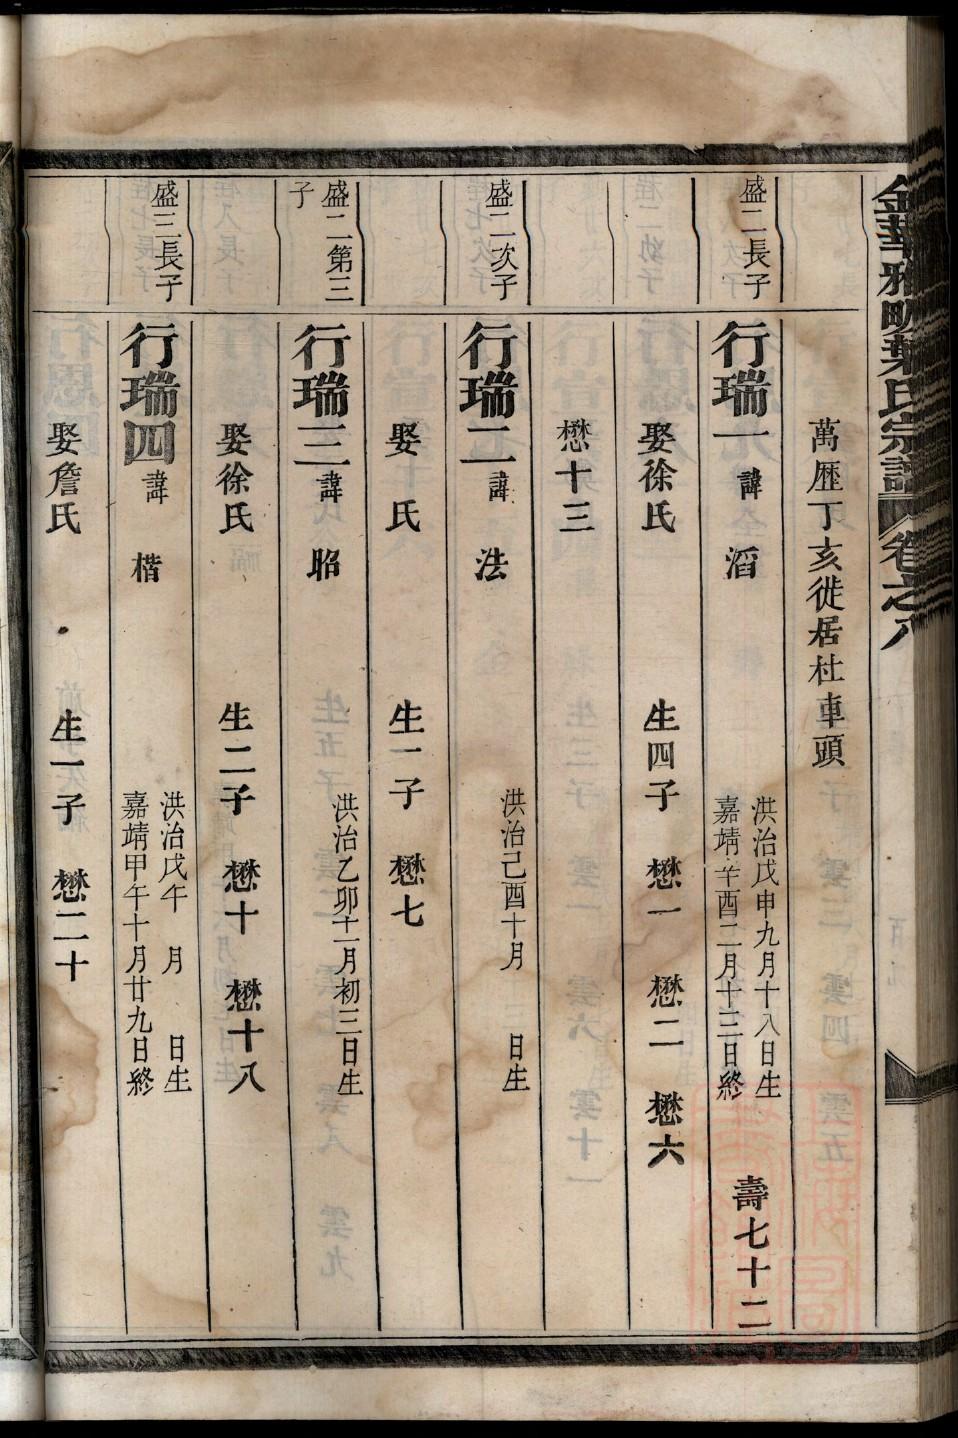 金華雅畈葉氏宗譜 卷之八
萬歷丁亥徙居杜車頭
盛二長子
行瑞一 諱 滔 洪治戊申九月十八日生
嘉靖辛酉二月十三日終 壽七十二
娶徐氏 生四子 懋一 懋二 懋六
懋十三
盛二次子
行瑞二 諱 法 洪治己酉十月 日生
娶 氏 生一子 懋七
盛二第三子
行瑞三 諱 昭 洪治乙卯十一月初三日生
娶徐氏 生二子 懋十 懋十八
盛三長子
行瑞四 諱 楷 洪治戊午 月 日生
嘉靖甲午十月廿九日終
娶詹氏 生一子 懋二十